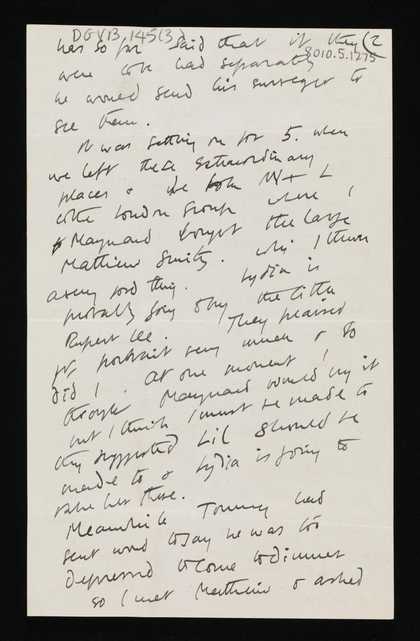 DGV13, 145(3)
8010.5.1275
(2
has so far said that if they
were to be had separately
he would send his surveyor to
see them.
It was getting on for 5. when
we left these extraordinary
places & We from N & L
to the London Group where
Maynard bought the large
Matthew Smith. which I think
a very good thing. Lydia is
probably going to buy the little
Rupert Lee. They praised
yr portrait very much & so
did I. At one moment I
thought Maynard would buy it
but I think I must be made to
they suggested Lil should be
made to & Lydia is going to
take her there.
Meanwhile Tommy had
sent word to say he was too
depressed to come to dinner
so I met Matthew & asked